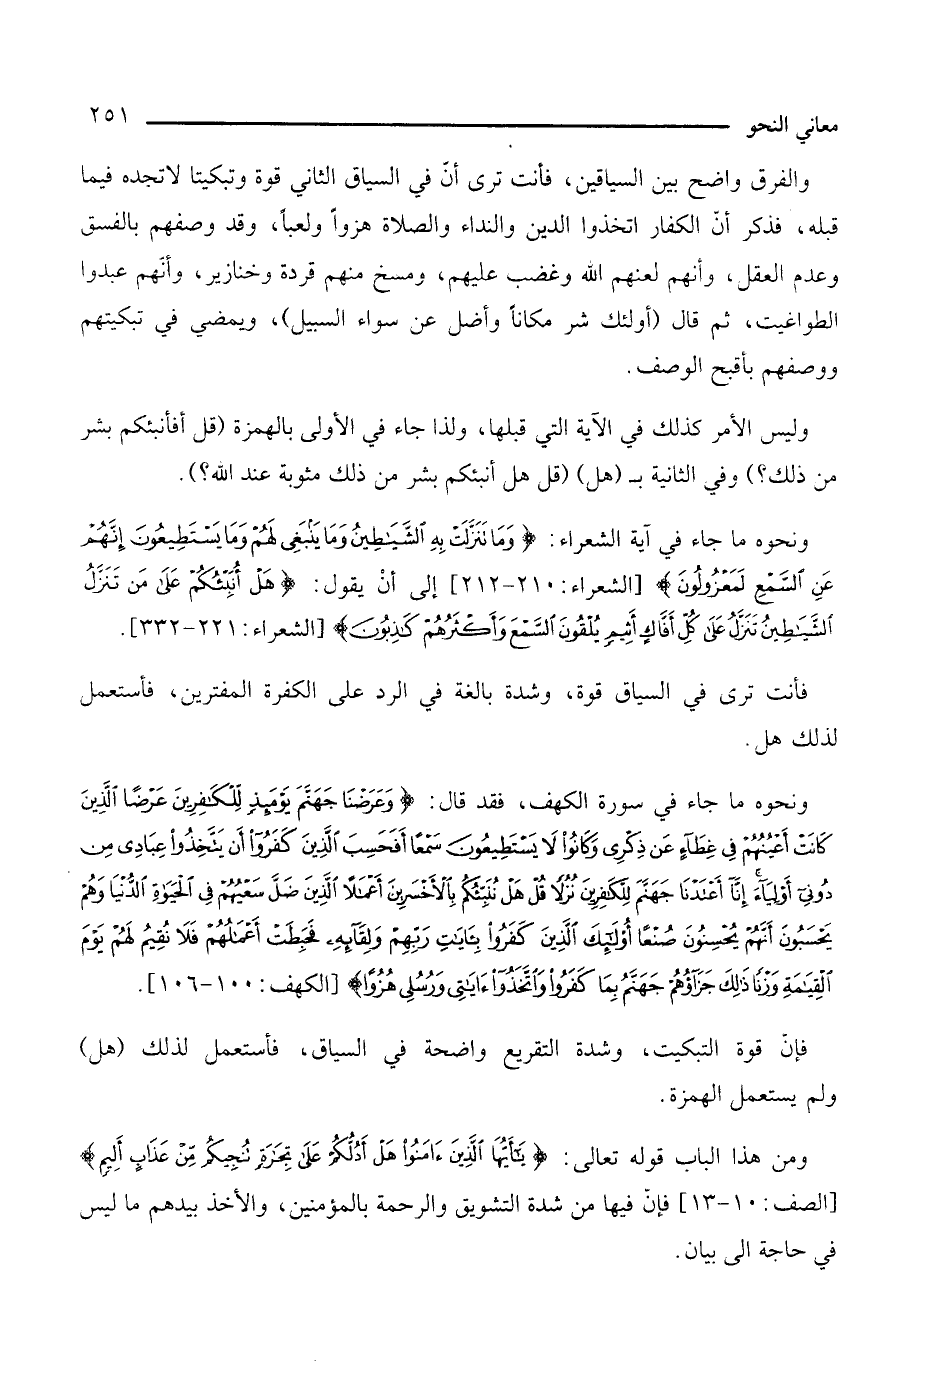 معاني النحو ٢٥١
والفرق واضح بين السياقين، فأنت ترى أنّ في السياق الثاني قوة وتبكيتا لاتجده فيما
قبله، فذكر أنّ الكفار اتخذوا الدين والنداء والصلاة هزواً ولعباً، وقد وصفهم بالفسق
وعدم العقل، وأنهم لعنهم الله وغضب عليهم، ومسخ منهم قردة وخنازير، وأنّهم عبدوا
الطواغيت، ثم قال (أولئك شر مكاناً وأضل عن سواء السبيل)، ويمضي في تبكيتهم
ووصفهم بأقبح الوصف.
وليس الأمر كذلك في الآية التي قبلها، ولذا جاء في الأولى بالهمزة (قل أفأنبئكم بشر
من ذلك؟) وفي الثانية بـ (هل) (قل هل أنبئكم بشر من ذلك مثوبة عند الله؟).
ونحوه ما جاء في آية الشعراء: ﴿ وَمَا نَنَزَّلَتْ بِهِ ٱلشَّيَٰطِينُ وَمَا يَنۢبَغِى لَهُمْ وَمَا يَسْتَطِيعُونَ إِنَّهُمْ
عَنِ ٱلسَّمْعِ لَمَعْزُولُونَ ﴾ [الشعراء: ٢١٠-٢١٢] إلى أنْ يقول: ﴿ هَلْ أُنَبِّئُكُمْ عَلَىٰ مَن تَنَزَّلُ
ٱلشَّيَٰطِينُ تَنَزَّلُ عَلَىٰ كُلِّ أَفَّاكٍ أَثِيمٍ يُلْقُونَ ٱلسَّمْعَ وَأَكْثَرُهُمْ كَٰذِبُونَ ﴾ [الشعراء: ٢٢١-٣٣٢].
فأنت ترى في السياق قوة، وشدة بالغة في الرد على الكفرة المفترين، فأستعمل
لذلك هل.
ونحوه ما جاء في سورة الكهف، فقد قال: ﴿ وَعَرَضْنَا جَهَنَّمَ يَوْمَئِذٍ لِّلْكَٰفِرِينَ عَرْضًا ٱلَّذِينَ
كَانَتْ أَعْيُنُهُمْ فِى غِطَآءٍ عَن ذِكْرِى وَكَانُوا۟ لَا يَسْتَطِيعُونَ سَمْعًا أَفَحَسِبَ ٱلَّذِينَ كَفَرُوٓا۟ أَن يَتَّخِذُوا۟ عِبَادِى مِن
دُونِىٓ أَوْلِيَآءَ إِنَّآ أَعْتَدْنَا جَهَنَّمَ لِلْكَٰفِرِينَ نُزُلًا قُلْ هَلْ نُنَبِّئُكُم بِٱلْأَخْسَرِينَ أَعْمَٰلًا ٱلَّذِينَ ضَلَّ سَعْيُهُمْ فِى ٱلْحَيَوٰةِ ٱلدُّنْيَا وَهُمْ
يَحْسَبُونَ أَنَّهُمْ يُحْسِنُونَ صُنْعًا أُو۟لَٰٓئِكَ ٱلَّذِينَ كَفَرُوا۟ بِـَٔايَٰتِ رَبِّهِمْ وَلِقَآئِهِۦ فَحَبِطَتْ أَعْمَٰلُهُمْ فَلَا نُقِيمُ لَهُمْ يَوْمَ
ٱلْقِيَٰمَةِ وَزْنًا ذَٰلِكَ جَزَآؤُهُمْ جَهَنَّمُ بِمَا كَفَرُوا۟ وَٱتَّخَذُوٓا۟ ءَايَٰتِى وَرُسُلِى هُزُوًا ﴾ [الكهف: ١٠٠-١٠٦].
فإنّ قوة التبكيت، وشدة التقريع واضحة في السياق، فأستعمل لذلك (هل)
ولم يستعمل الهمزة.
ومن هذا الباب قوله تعالى: ﴿ يَٰٓأَيُّهَا ٱلَّذِينَ ءَامَنُوا۟ هَلْ أَدُلُّكُمْ عَلَىٰ تِجَٰرَةٍ تُنجِيكُم مِّنْ عَذَابٍ أَلِيمٍ ﴾
[الصف: ١٠-١٣] فإنّ فيها من شدة التشويق والرحمة بالمؤمنين، والأخذ بيدهم ما ليس
في حاجة الى بيان.